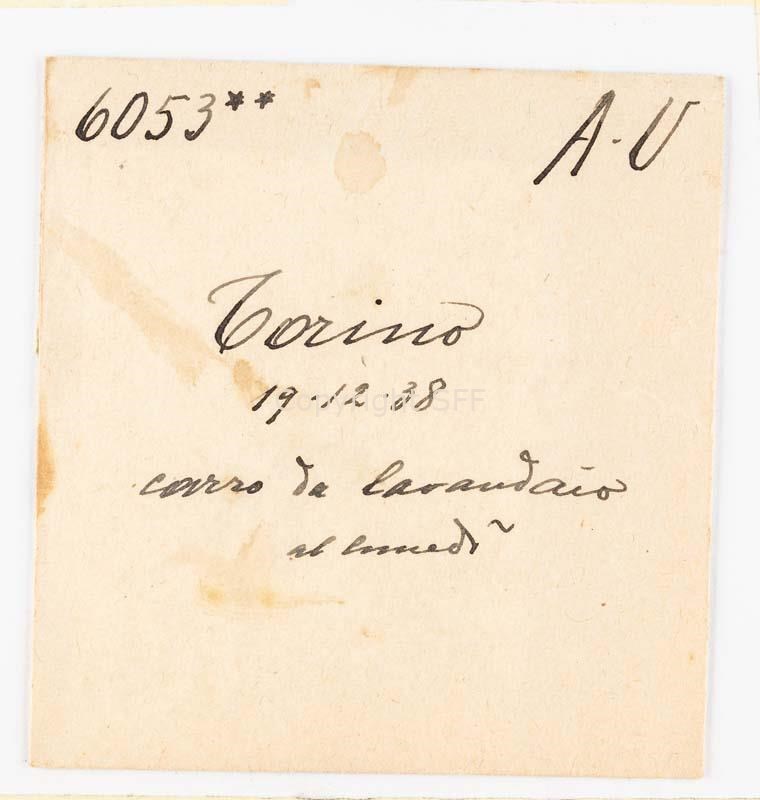 6053** A.V
Torino
19.12.38
carro da lavandaio
al lunedì